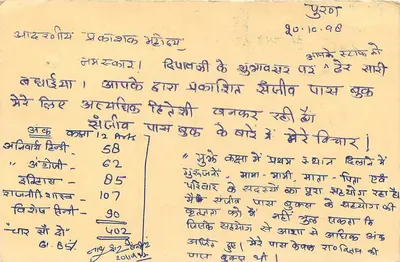 पुरण
20.10.98
आदरणीय प्रकाशक महोदय
आपके स्टाफ को
नमस्कार। दिपावली के शुभावसर पर ढेर सारी
बधाईयां। आपके द्वारा प्रकाशित संजीव पास बुक
मेरे लिए अत्यधिक हितेशी बनकर रही है।
संजीव पास बुक के बारे में मेरे विचार।
अंक कक्षा 12 Arts
अनिवार्य हिन्दी - 58
" अंग्रेजी - 62
इतिहास - 85
राजनीति शास्त्र - 107
विशेष हिन्दी - 90
402
चार सौ दो
"मुझे कक्षा में प्रथम स्थान दिलाने में
गुरूजनों - मामा-मामी, माता-पिता एवं
परिवार के सदस्यों का पूरा सहयोग रहा है।
मैं संजीव पास बुक्स के सहयोग की
कृतज्ञता को मैं नहीं भूल सकता कि
जिसके सहयोग से आशा से अधिक अंक
अर्जित हुए। मेरे पास केवल की
पास बुक्स थी।